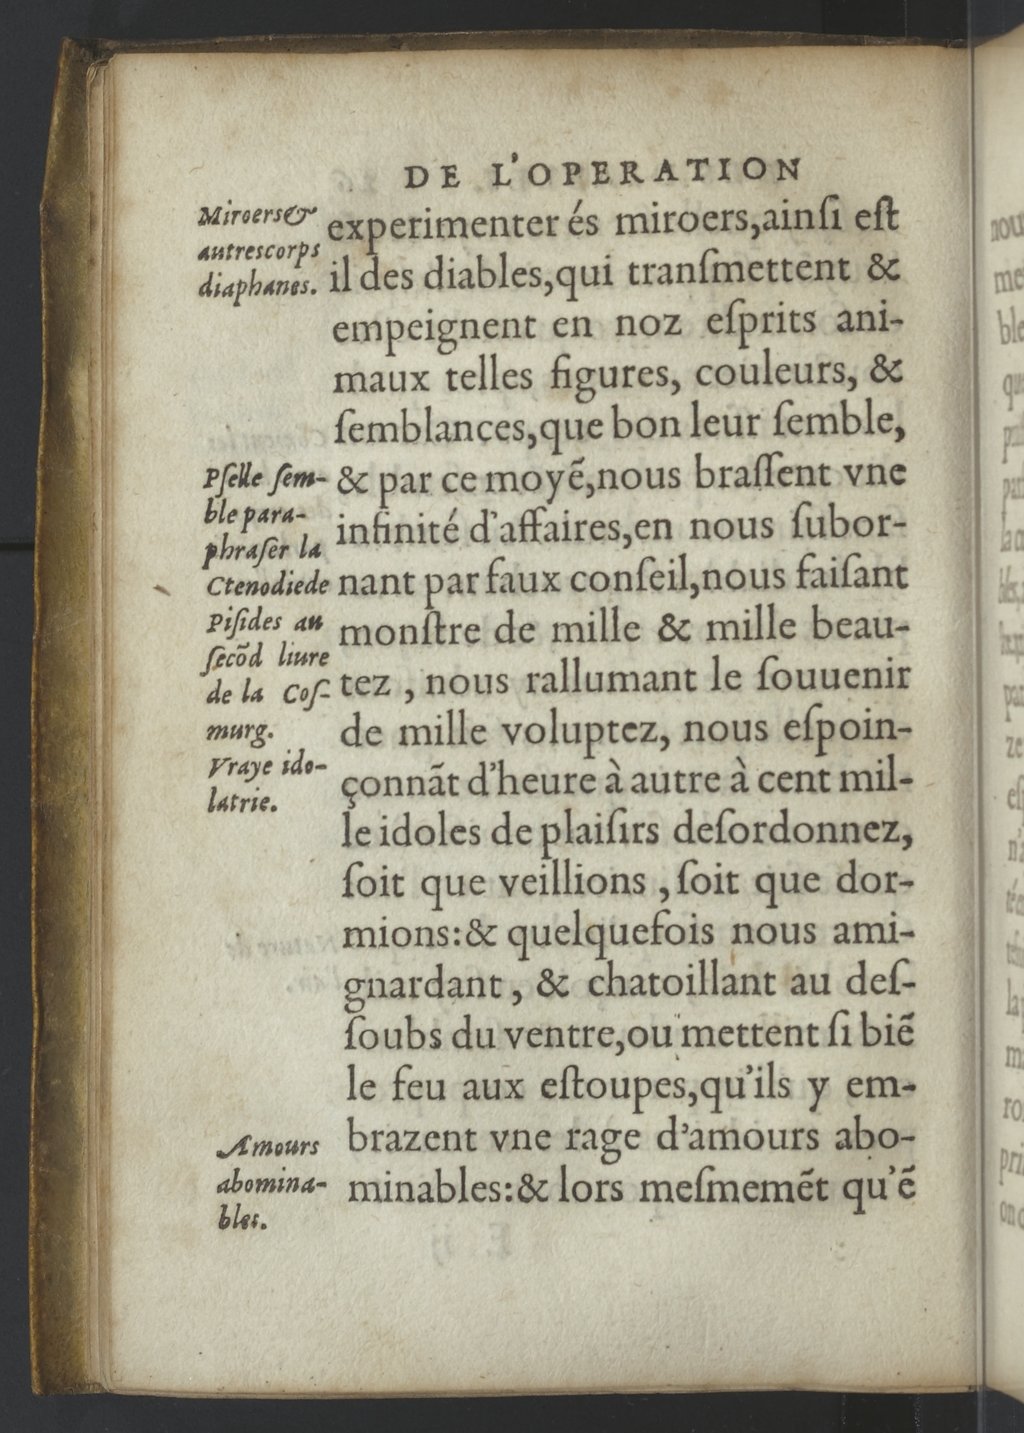 DE L'OPERATION
Miroers&
autres corps
diaphanes.
experimenter és miroers, ainſi eſt
il des diables, qui tranſmettent &
empeignent en noz eſprits ani-
maux telles figures, couleurs, &
ſemblances, que bon leur ſemble,
& par ce moyẽ, nous braſſent vne
infinité d'affaires, en nous ſubor-
nant par faux conſeil, nous faiſant
monſtre de mille & mille beau-
tez , nous rallumant le ſouuenir
de mille voluptez, nous eſpoin-
çonnãt d'heure à autre à cent mil-
le idoles de plaiſirs deſordonnez,
ſoit que veillions , ſoit que dor-
mions: & quelquefois nous ami-
gnardant , & chatoillant au deſ-
ſoubs du ventre, ou mettent ſi biẽ
le feu aux eſtoupes, qu'ils y em-
brazent vne rage d'amours abo-
minables: & lors meſmemẽt qu'ẽ
Pſelle ſem-
ble para-
phraſer la
Ctenodie de
Piſides au
ſecõd liure
de la Coſ-
murg.
Vraye ido-
latrie.
Amours
abomina-
bles.